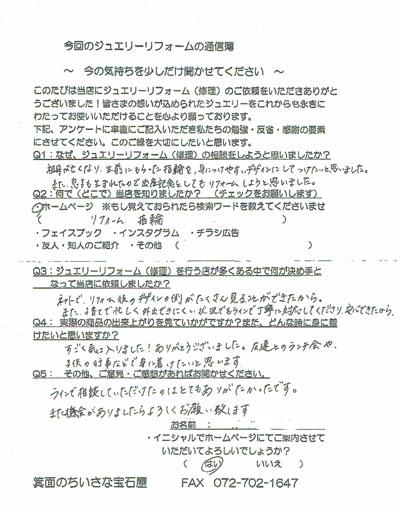 今回のジュエリーリフォームの通信簿
～ 今の気持ちを少しだけ聞かせてください ～
このたびは当店にジュエリーリフォーム（修理）のご依頼をいただきありがと
うございました！皆さまの想いが込められたジュエリーをこれからも永きに
わたってお使いいただけることを心より願っております。
下記、アンケートに率直にご記入いただき私たちの勉強・反省・感謝の要素
にさせてください。このご縁を大切にしたいと思います。
Q1：なぜ、ジュエリーリフォーム（修理）の相談をしようと思いましたか？
祖母が亡くなり、生前にもらった指輪を、身につけやすいデザインにしてつけたいと思いました。
また、息子も生まれたので出産記念としてもリフォームしようと思いました。
Q2：何で（どこで）当店を知りましたか？ （チェックをお願いします）
・ホームページ ※もし覚えておられたら検索ワードを教えてくださいませ
（ リフォーム 指輪 ）
・フェイスブック ・インスタグラム ・チラシ広告
・友人・知人のご紹介 ・その他（ ）
Q3：ジュエリーリフォーム（修理）を行う店が多くある中で何が決め手と
なって当店に依頼しましたか？
ネットで、リフォーム後のデザインの例がたくさん見ることができたから。
また、子育てで忙しく外出できにくい状況でもラインで丁寧に対応してくださり、安心できたから。
Q4： 実際の商品の出来上がりを見ていかがですか？また、どんな時に身に着
けたいと思いますか？
すごく気に入りました！ありがとうございました。友達とのランチ会や、
子供の行事などで身に着けたいと思います
Q5： その他、ご意見・ご感想があればお聞かせください。
ラインで相談していただけたのはとてもありがたかったです。
また機会がありましたらよろしくお願い致します
お名前：
・イニシャルでホームページにてご案内させて
いただいてよろしいでしょうか？
（ はい いいえ ）
箕面のちいさな宝石屋 FAX 072-702-1647